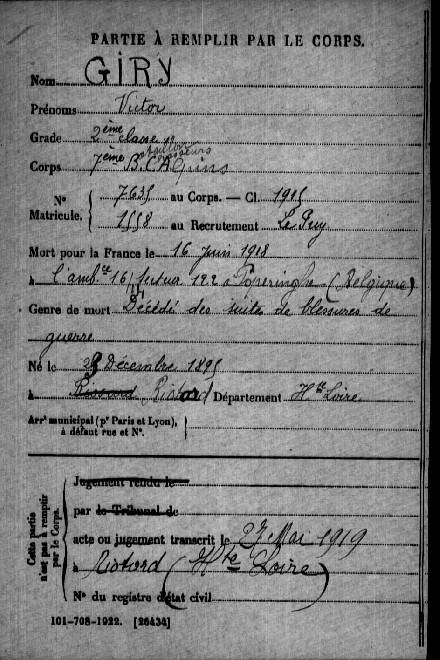 PARTIE À REMPLIR PAR LE CORPS.
Nom GIRY
Prénoms Victor
Grade 2ème classe
Corps 7ème B.C.Alpins
Bataillon Chasseurs
Nº Matricule. 7635 au Corps. — Cl. 1915
1558 au Recrutement Le Puy
Mort pour la France le 16 Juin 1918
à l'ambce 16/1 secteur 122 Poperinghe (Belgique)
Genre de mort Décédé des suites de blessures de
guerre
Né le 28 Décembre 1895
à Riotord Département Hte Loire
Arrt municipal (pr Paris et Lyon),
à défaut rue et Nº.
Cette partie n'est pas à remplir par le Corps.
Jugement rendu le
par le Tribunal de
acte ou jugement transcrit le 27 Mai 1919
à Riotord (Hte Loire)
Nº du registre d'état civil
101-708-1922. [26434]